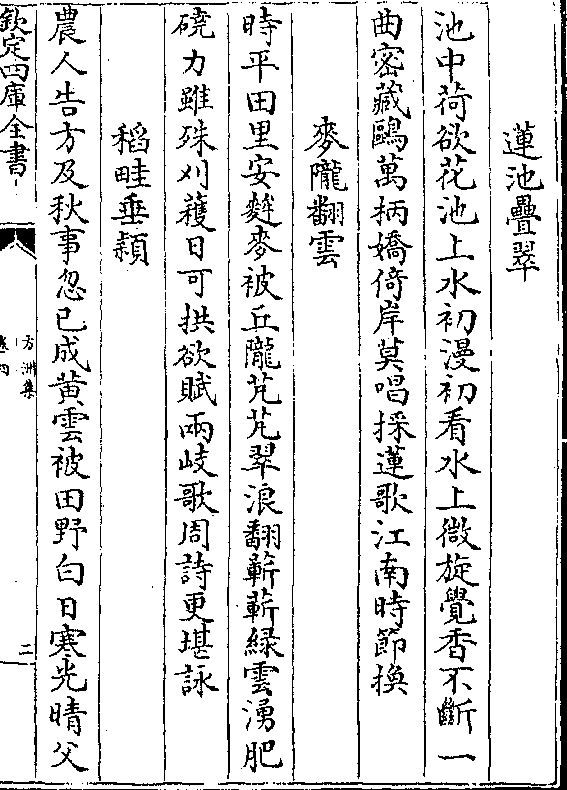 蓮池疊翠
池中荷欲花池上水初漫初看水上微旋覺香不斷一
曲密藏鷗萬柄嬌倚岸莫唱採蓮歌江南時節換
麥隴翻雲
時平田里安麰麥被丘隴芃芃翠浪翻蔪蔪綠雲湧肥
磽力雖殊刈穫日可拱欲賦兩岐歌周詩更堪詠
稻畦垂穎
農人告方及秋事忽已成黃雲被田野白日寒光晴父
欽定四庫全書
方洲集
卷四
二